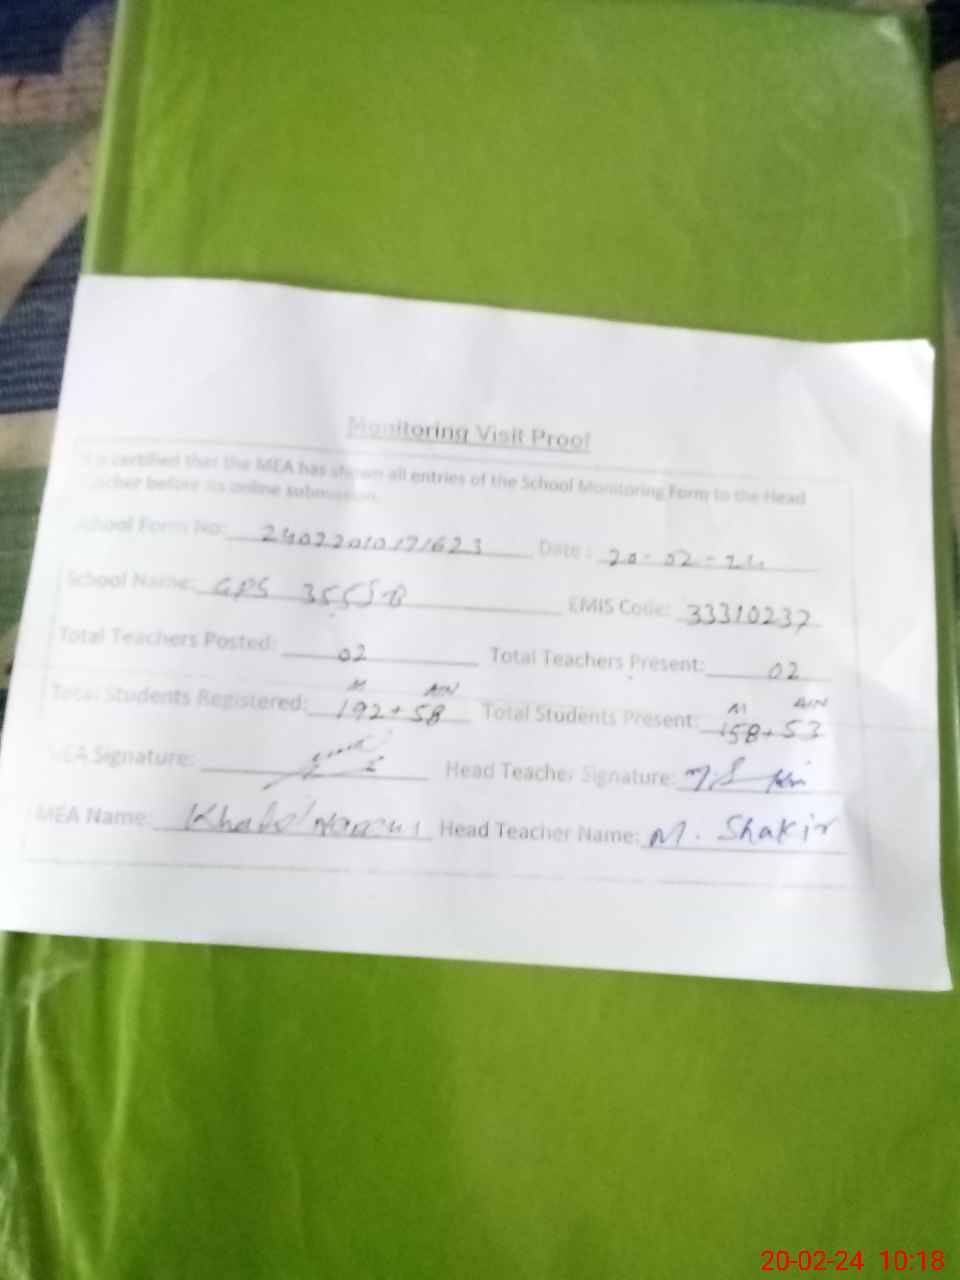 Monitoring Visit Proof
It is certified that the MEA has shown all entries of the School Monitoring Form to the Head
Teacher before its online submission.
School Form No: Date: 20-02-24
School Name: GPS 355JB EMIS Code: 33310237
Total Teachers Posted: 02 Total Teachers Present: 02
M A/N M A/N
Total Students Registered: 192+58 Total Students Present: 158+53
MEA Signature: Head Teacher Signature:
MEA Name: Head Teacher Name: M. Shakir
20-02-24 10:18